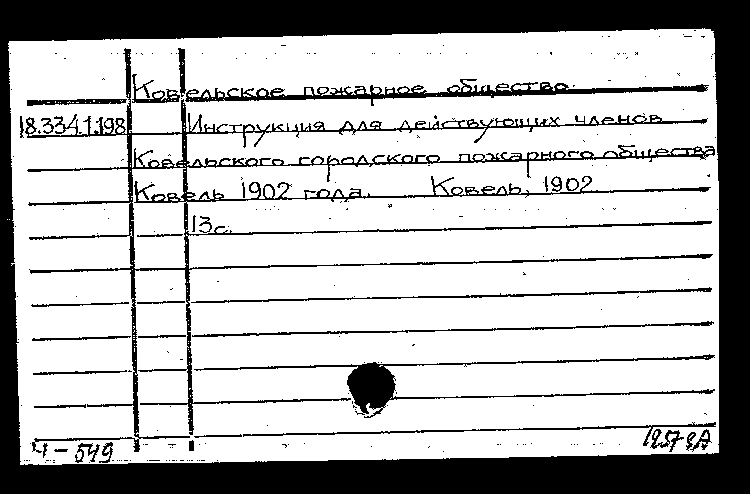 Ковельское пожарное общество.
18.334.1.198 Инструкция для действующих членов
Ковельского городского пожарного общества
Ковель 1902 года. Ковель, 1902
13с.
Ч-549